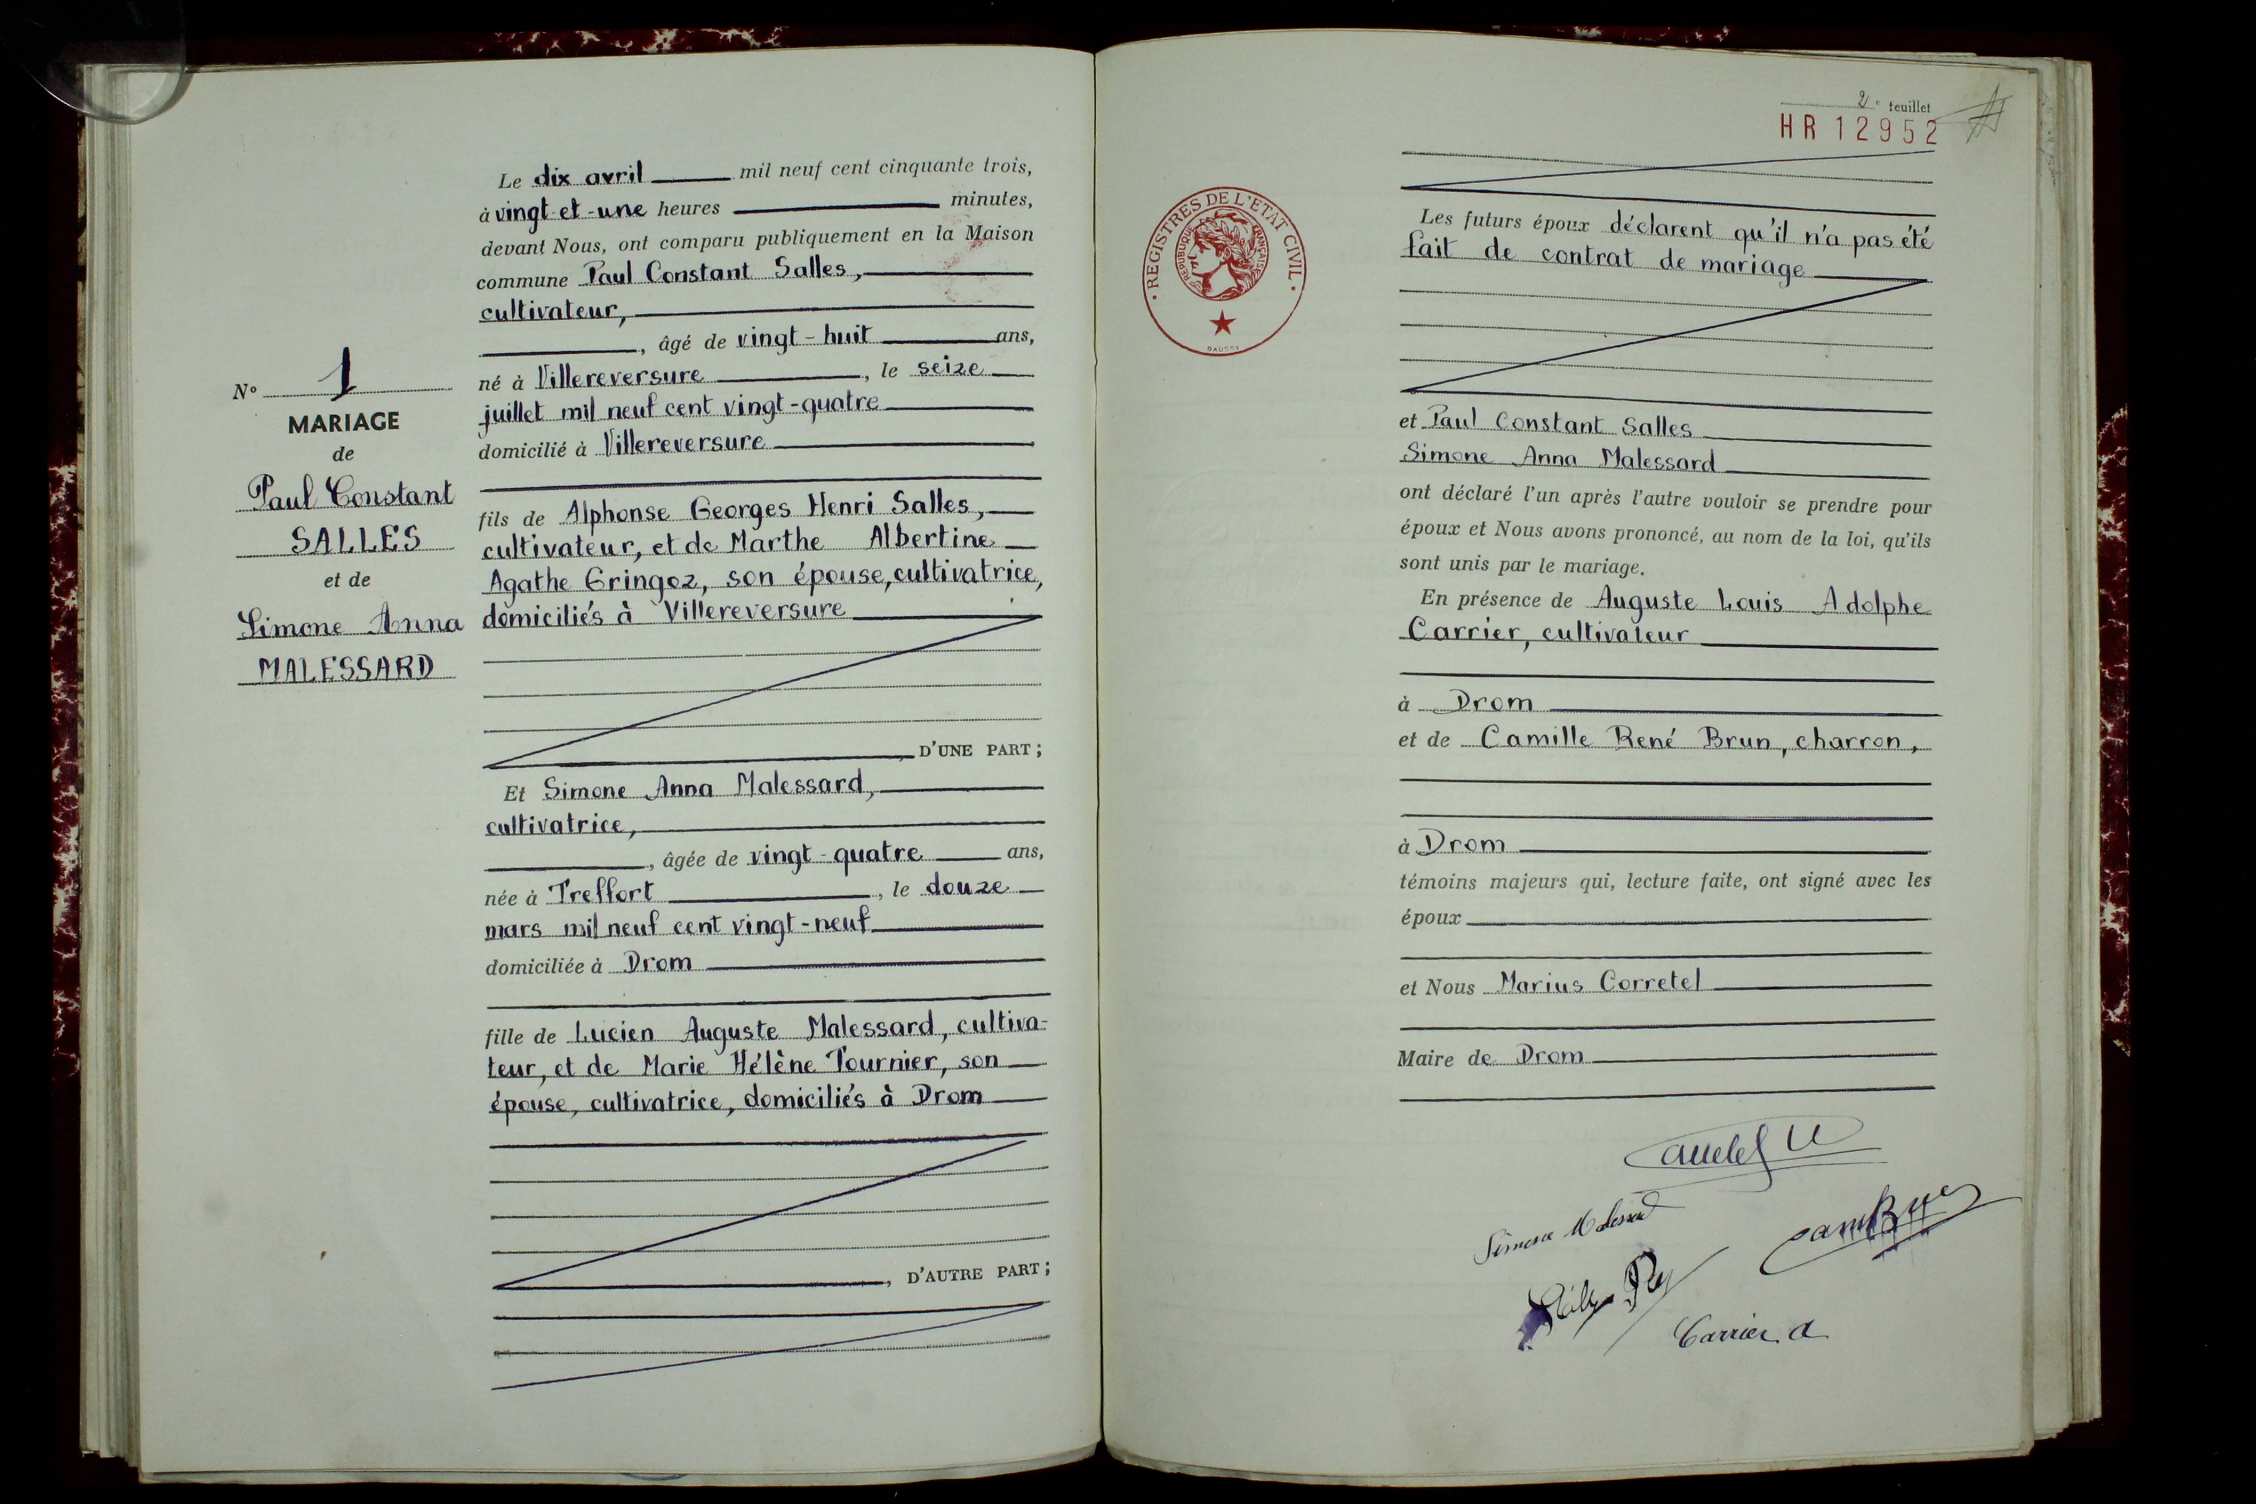 Le dix avril mil neuf cent cinquante trois,
à vingt-et-une heures minutes,
devant Nous, ont comparu publiquement en la Maison
commune Paul Constant Salles,
cultivateur,
, âgé de vingt-huit ans,
né à Villereversure, le seize
juillet mil neuf cent vingt-quatre
domicilié à Villereversure
fils de Alphonse Georges Henri Salles,
cultivateur, et de Marthe Albertine
Agathe Gringoz, son épouse, cultivatrice,
domiciliés à Villereversure
D'UNE PART;
Et Simone Anna Malessard,
cultivatrice,
, âgée de vingt-quatre ans,
née à Treffort, le douze
mars mil neuf cent vingt-neuf
domiciliée à Drom
fille de Lucien Auguste Malessard, cultiva-
teur, et de Marie Hélène Tournier, son
épouse, cultivatrice, domiciliés à Drom
, D'AUTRE PART;
N° 1
MARIAGE
de
Paul Constant
SALLES
et de
Simone Anna
MALESSARD
2e feuillet
HR 12952
REGISTRES DE L'ETAT CIVIL
REPUBLIQUE FRANÇAISE
Les futurs époux déclarent qu'il n'a pas été
fait de contrat de mariage
et Paul Constant Salles
Simone Anna Malessard
ont déclaré l'un après l'autre vouloir se prendre pour
époux et Nous avons prononcé, au nom de la loi, qu'ils
sont unis par le mariage.
En présence de Auguste Louis Adolphe
Carrier, cultivateur
à Drom
et de Camille René Brun, charron,
à Drom
témoins majeurs qui, lecture faite, ont signé avec les
époux
et Nous Marius Corretel
Maire de Drom
Simone Malessard
Carrier A